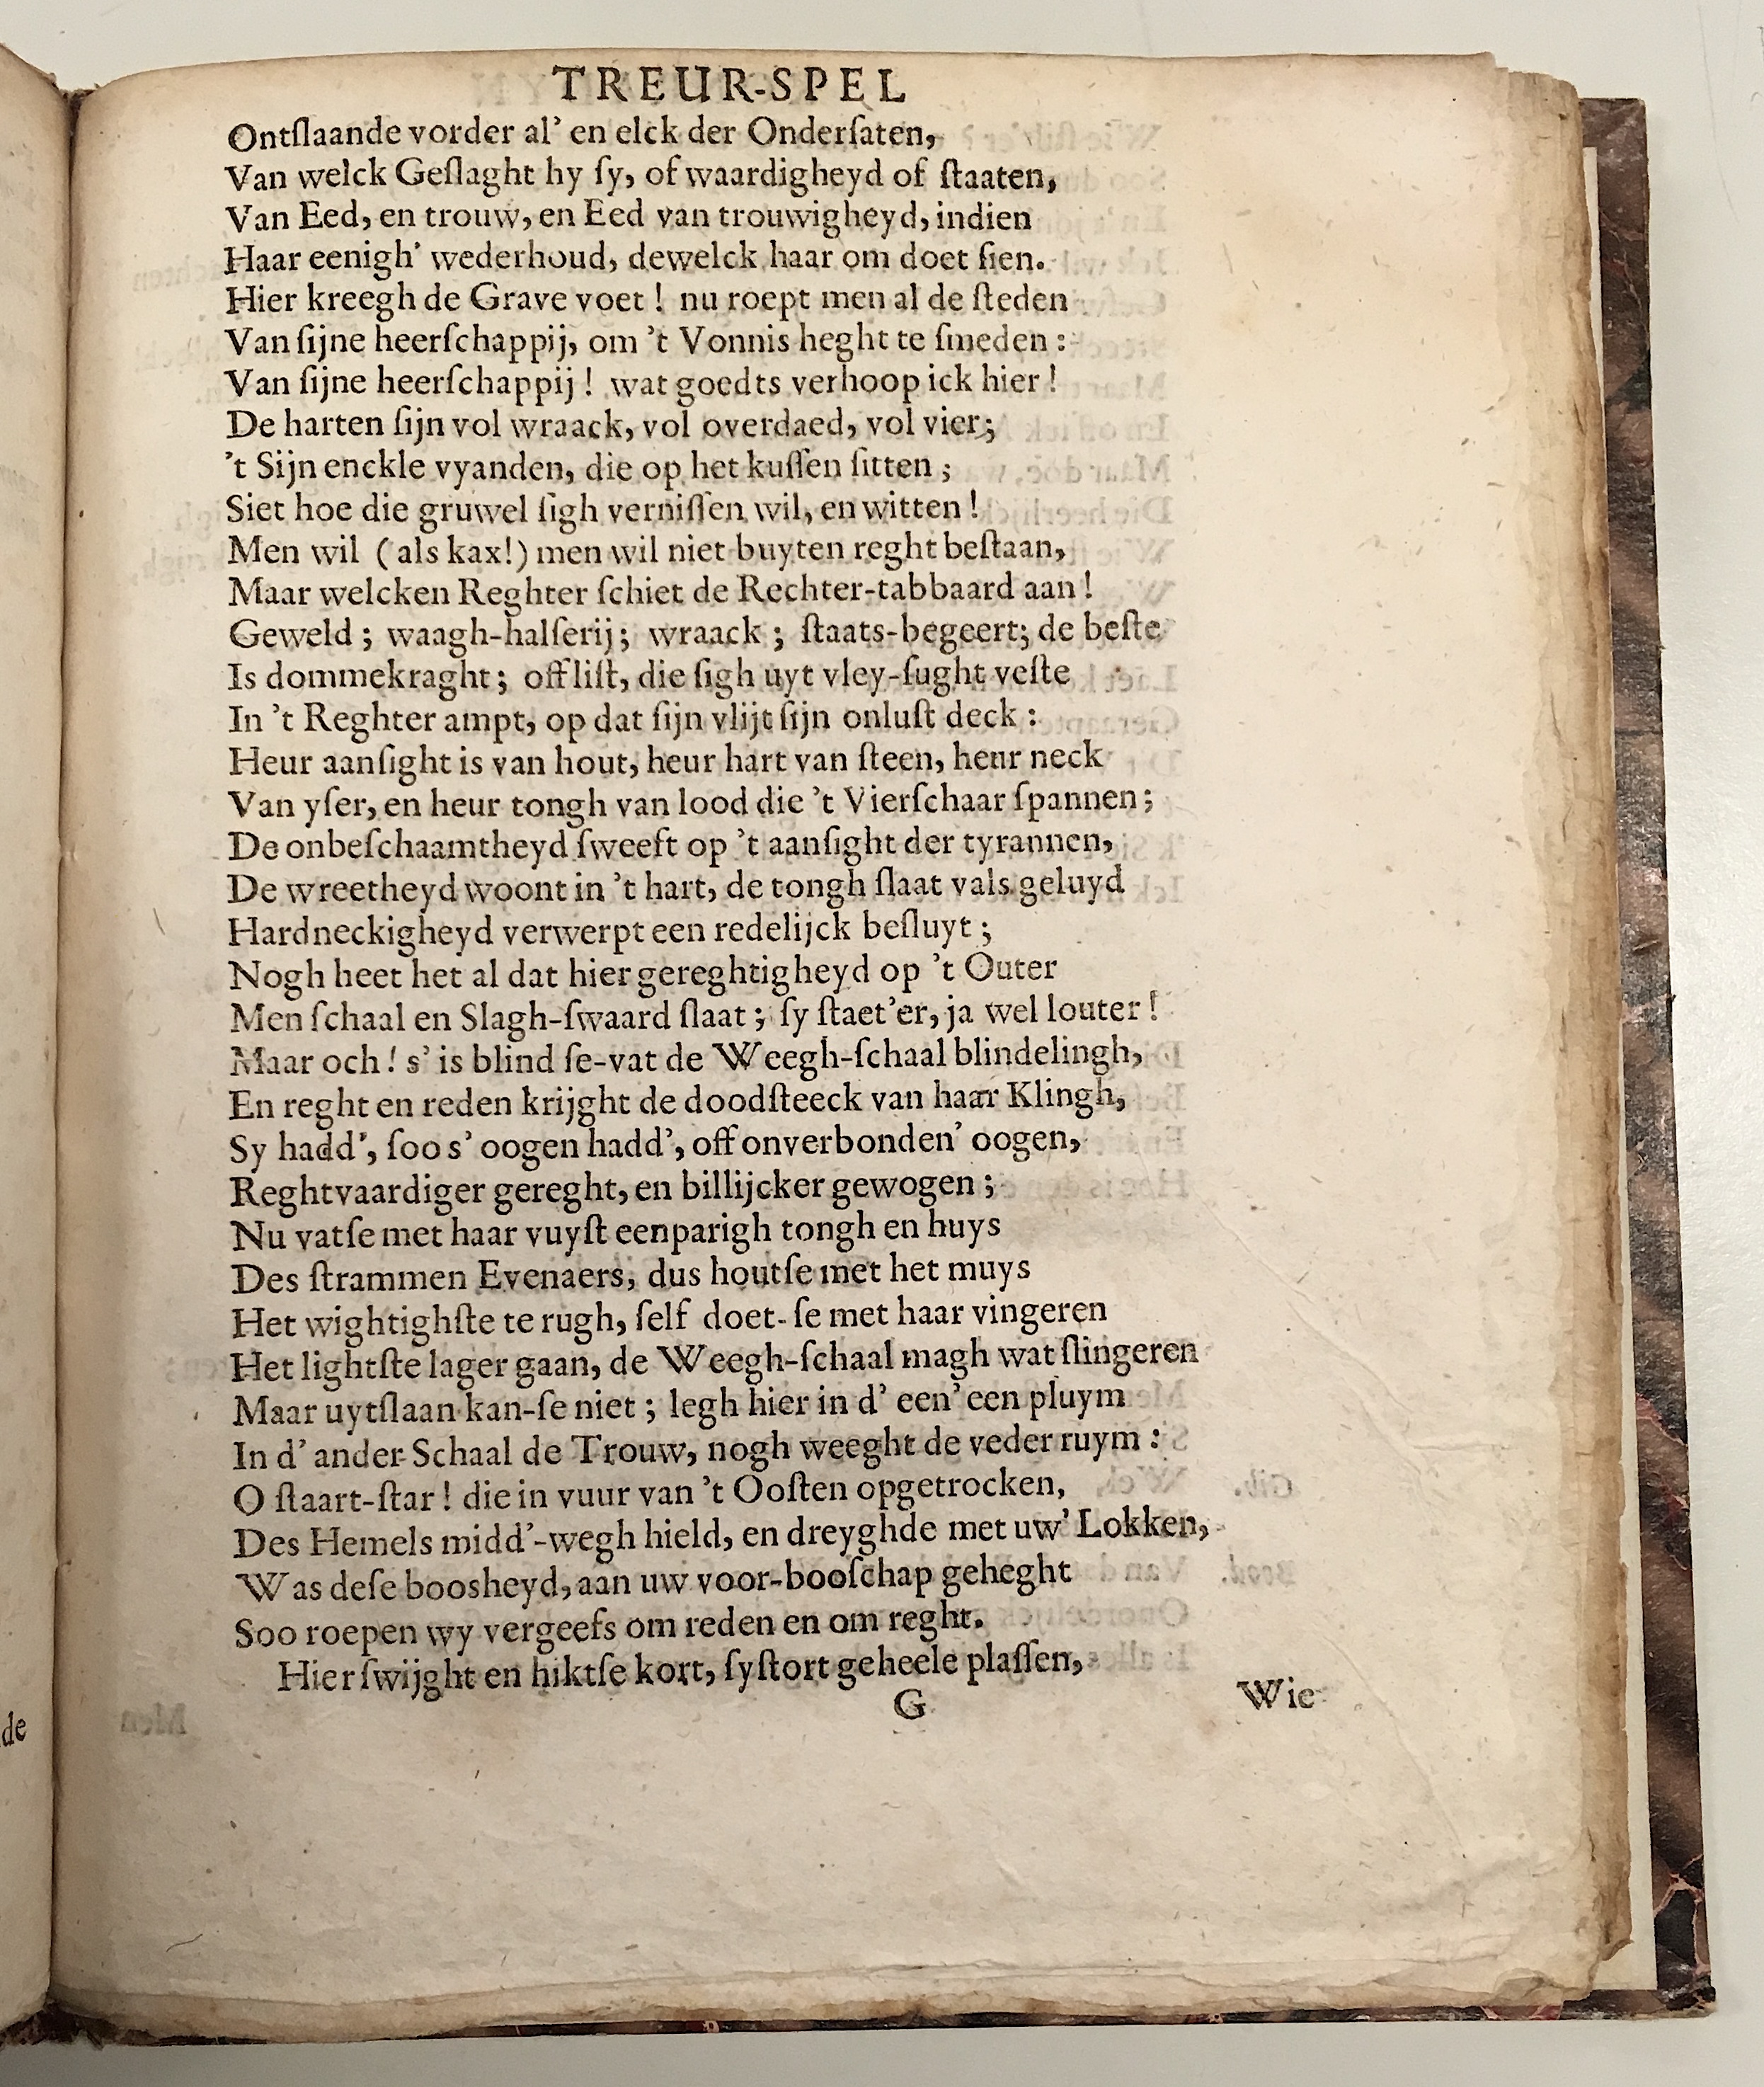 TREUR-SPEL
Ontſlaande vorder al’ en elck der Onderſaten,
Van welck Geſlaght hy ſy, of waardigheyd of ſtaaten,
Van Eed, en trouw, en Eed van trouwigheyd, indien
Haar eenigh’ wederhoud, dewelck haar om doet ſien.
Hier kreegh de Grave voet! nu roept men al de ſteden
Van ſijne heerſchappij, om ’t Vonnis heght te ſmeden:
Van ſijne heerſchappij! wat goedts verhoop ick hier!
De harten ſijn vol wraack, vol overdaed, vol vier;
’t Sijn enckle vyanden, die op het kuſſen ſitten;
Siet hoe die gruwel ſigh verniſſen wil, en witten!
Men wil (als kax!) men wil niet buyten reght beſtaan,
Maar welcken Reghter ſchiet de Rechter-tabbaard aan!
Geweld; waagh-halſerij; wraack; ſtaats-begeert; de beſte
Is dommekraght; off liſt, die ſigh uyt vley-ſught veſte
In ’t Reghter ampt, op dat ſijn vlijt ſijn onluſt deck:
Heur aanſight is van hout, heur hart van ſteen, heur neck
Van yſer, en heur tongh van lood die ’t Vierſchaar ſpannen;
De onbeſchaamtheyd ſweeft op ’t aanſight der tyrannen,
De wreetheyd woont in ’t hart, de tongh ſlaat vals geluyd
Hardneckigheyd verwerpt een redelijck beſluyt;
Nogh heet het al dat hier gereghtigheyd op ’t Outer
Men ſchaal en Slagh-ſwaard ſlaat; ſy ſtaet’er, ja wel louter!
Maar och! s’ is blind ſe-vat de Weegh-ſchaal blindelingh,
En reght en reden krijght de doodſteeck van haar Klingh,
Sy hadd’, ſoo s’ oogen hadd’, off onverbonden’ oogen,
Reghtvaardiger gereght, en billijcker gewogen;
Nu vatſe met haar vuyſt eenparigh tongh en huys
Des ſtrammen Evenaers, dus houtſe met het muys
Het wightighſte te rugh, ſelf doet-ſe met haar vingeren
Het lightſte lager gaan, de Weegh-ſchaal magh wat ſlingeren
Maar uytſlaan kan-ſe niet; legh hier in d’ een’ een pluym
In d’ ander Schaal de Trouw, nogh weeght de veder ruym:
O ſtaart-ſtar! die in vuur van ’t Ooſten opgetrocken,
Des Hemels midd’-wegh hield, en dreyghde met uw’ Lokken,
Was deſe boosheyd, aan uw voor-booſchap geheght
Soo roepen wy vergeefs om reden en om reght.
Hier ſwijght en hiktſe kort, ſy ſtort geheele plaſſen,
G Wie
de